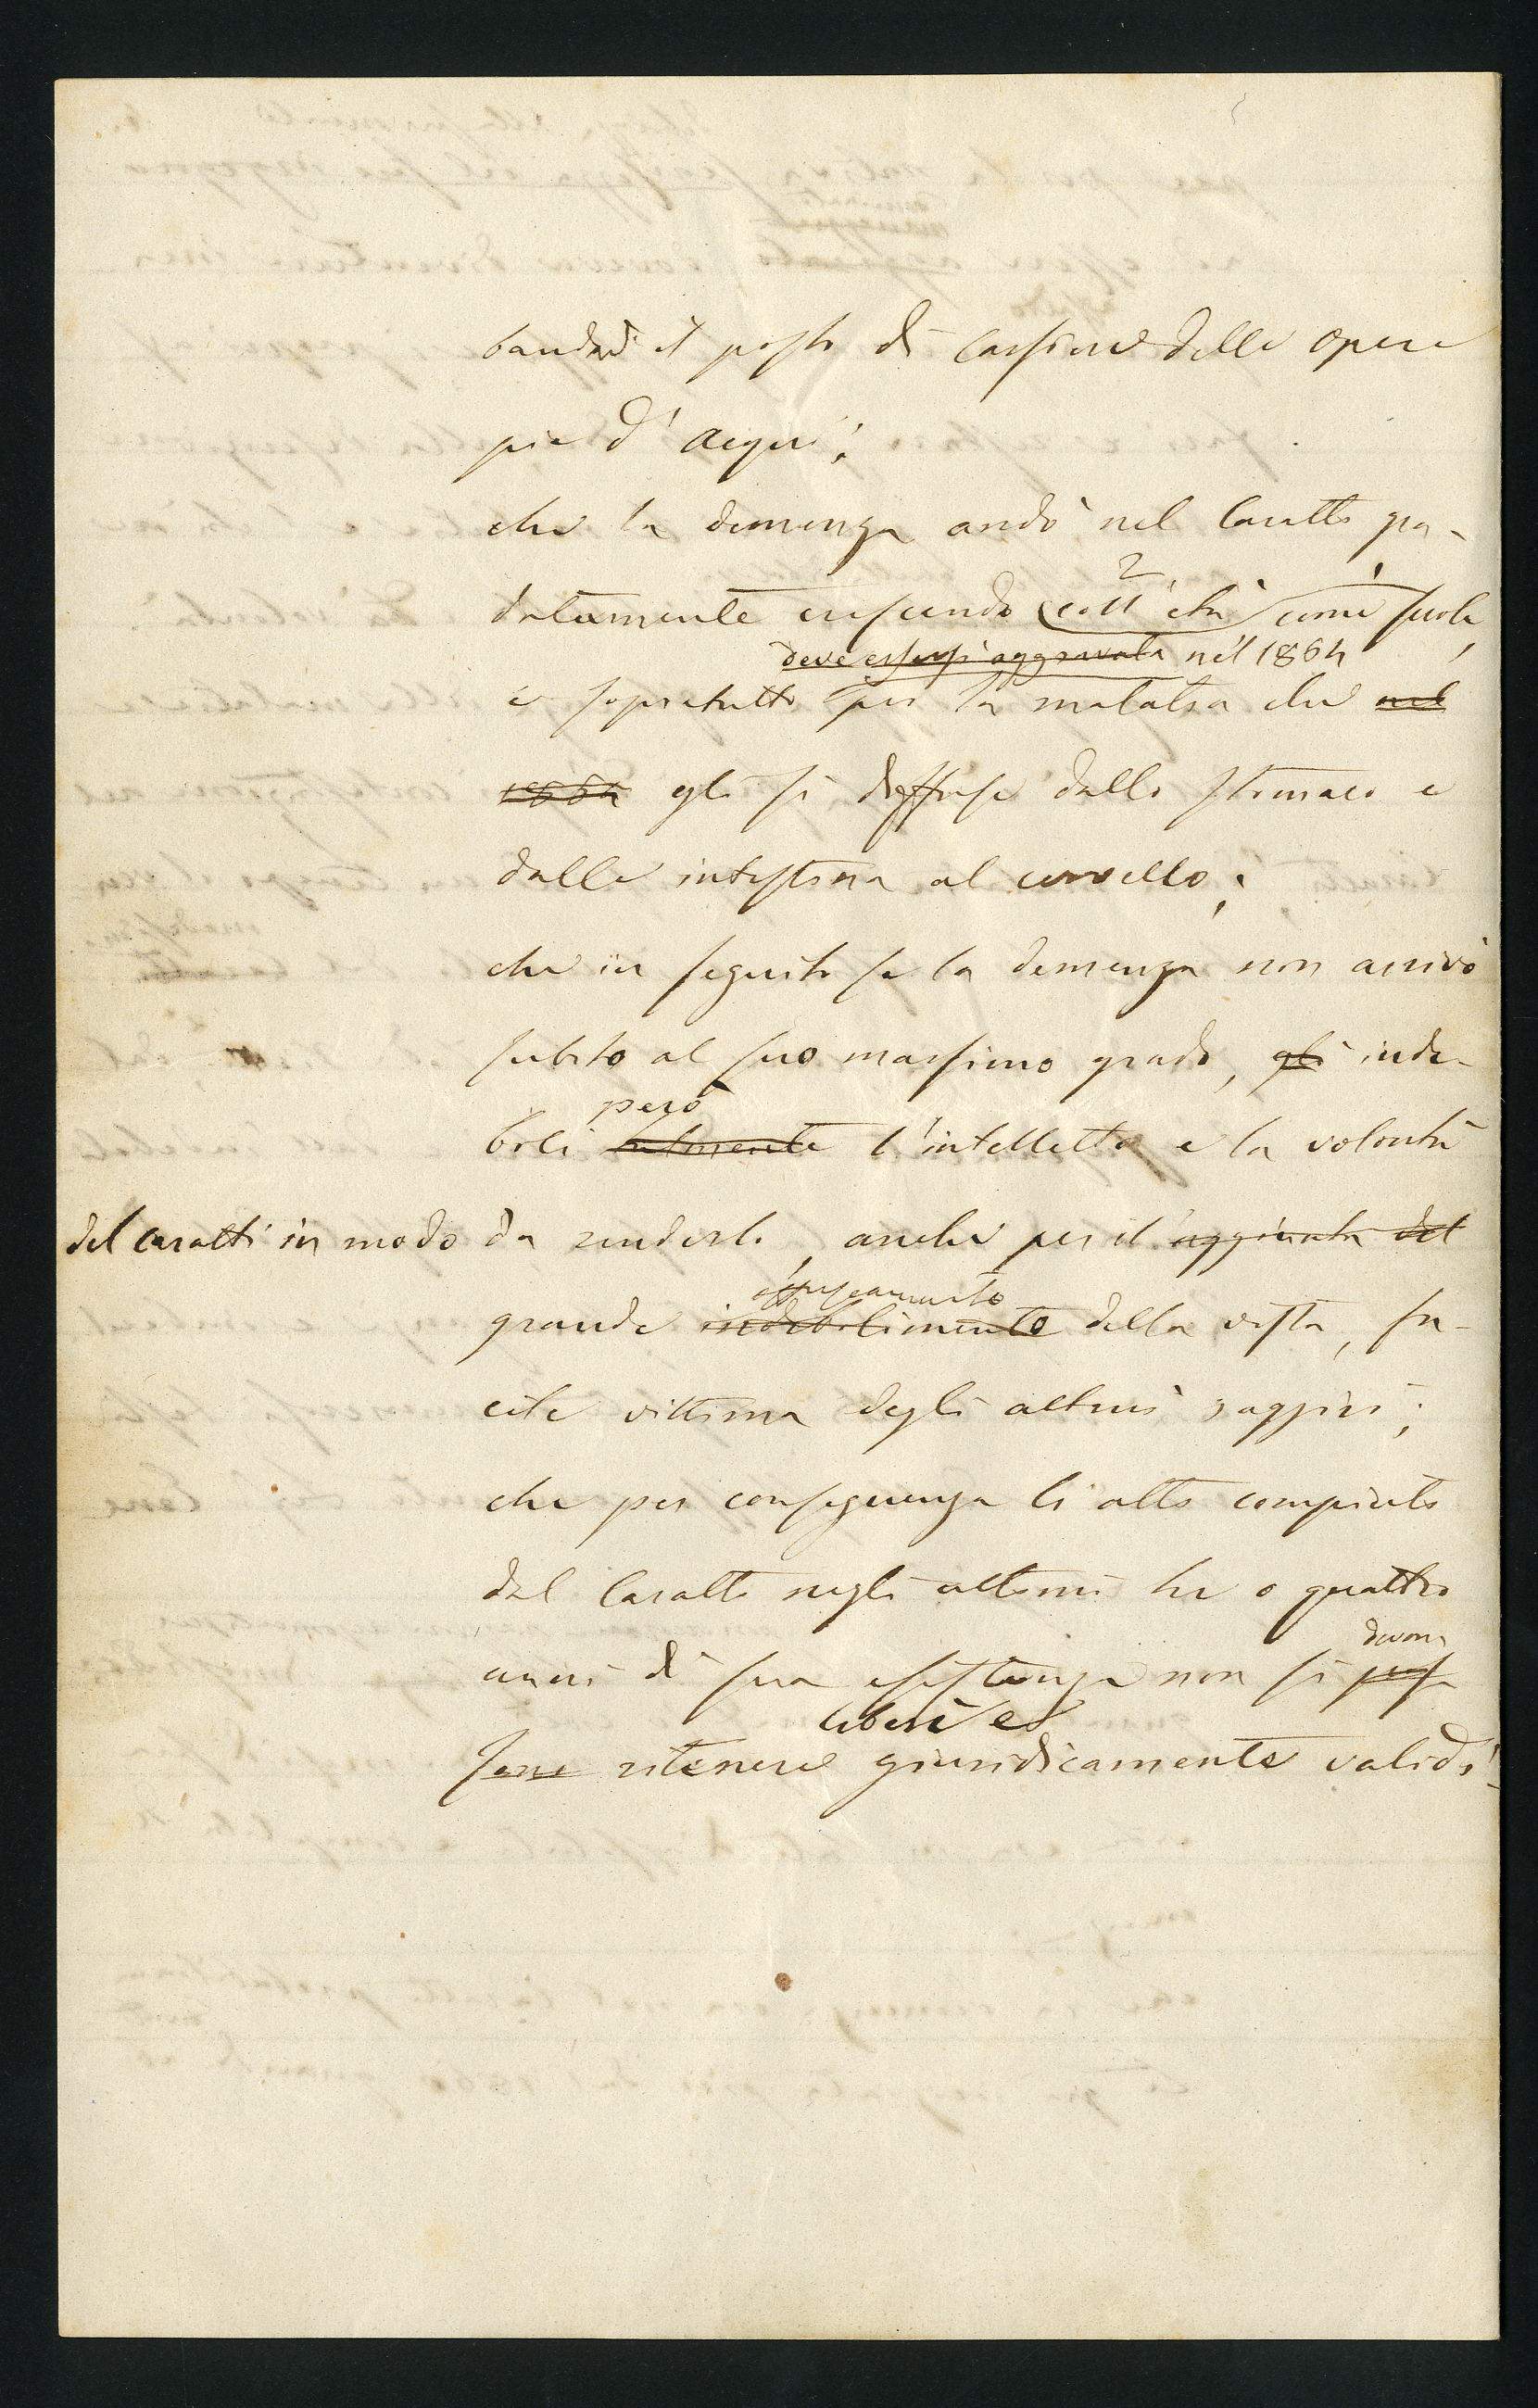 bandonò il posto di Cassiere delle opere
pie d'Acqui;
che la demenza andò nel Caratti gra-
datamente crescendo coll'età come suole,
2 1
deve essersi aggravata nel 1864
e sopratutto per la malatia che nel
1864 gli si diffuse dallo stomaco e
dalle intestina al cervello;
che in seguito se la demenza non arrivò
subito al suo massimo grado, gli inde-
però
bolì talmente l'intelletto e la volontà
del Caratti in modo da renderlo, anche per il aggiunta del
offuscamento
grande indebolimento della vista, fa-
cile vittima degli altrui raggiri;
che per conseguenza li atti compiuti
dal Caratti negli ultimi tre o quattro
devono
anni di sua esistenza non si pos
sono ritenere giuridicamente validi
liberi e